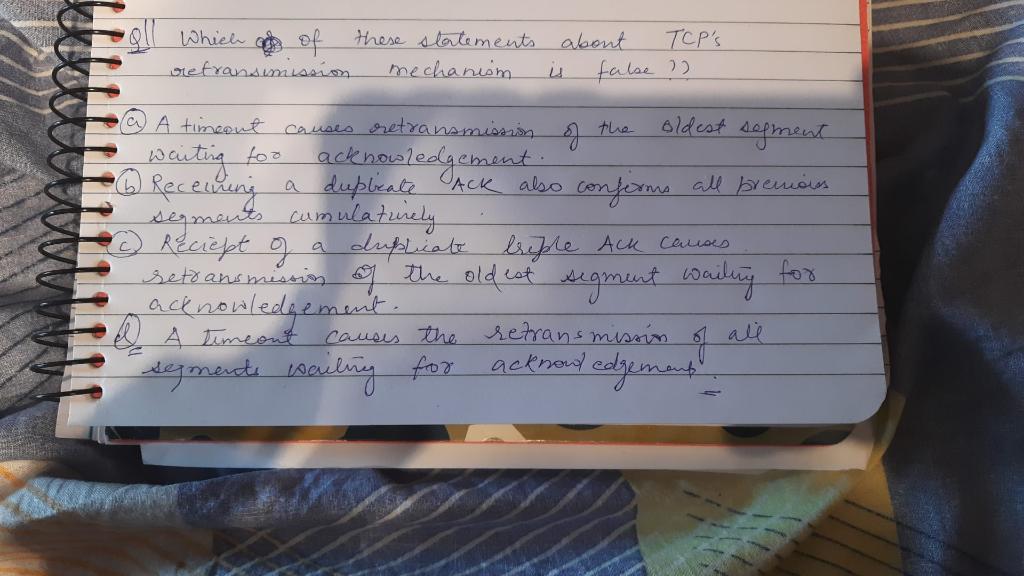 Q11 Which of these statements about TCP's
retransmission mechanism is false ??
(a) A timeout causes retransmission of the oldest segment
waiting for acknowledgement.
(b) Receiving a duplicate ACK also confirms all previous
segments cumulatively
(c) Reciept of a duplicate triple ACK causes
retransmission of the oldest segment waiting for
acknowledgement.
(d) A timeout causes the retransmission of all
segments waiting for acknowledgement.